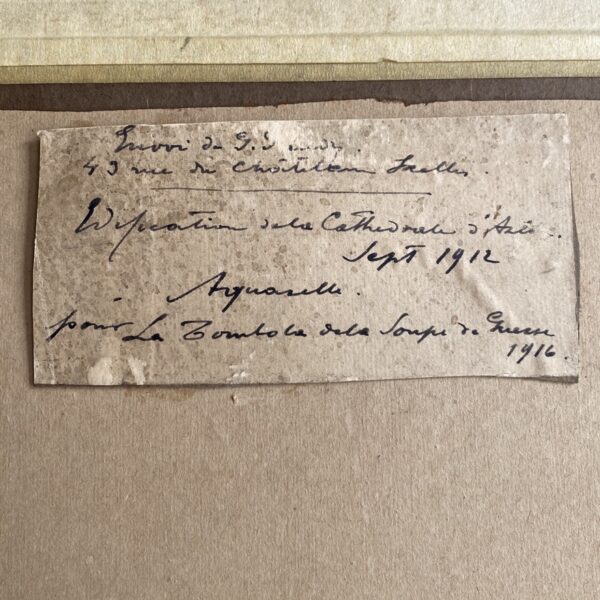 Envoi de G.
43 rue du Châtelain Ixelles.
Edification de la Cathedrale d'
Sept 1912
Aquarelle.
pour La Tombola de la Soupe de Guerre
1916.